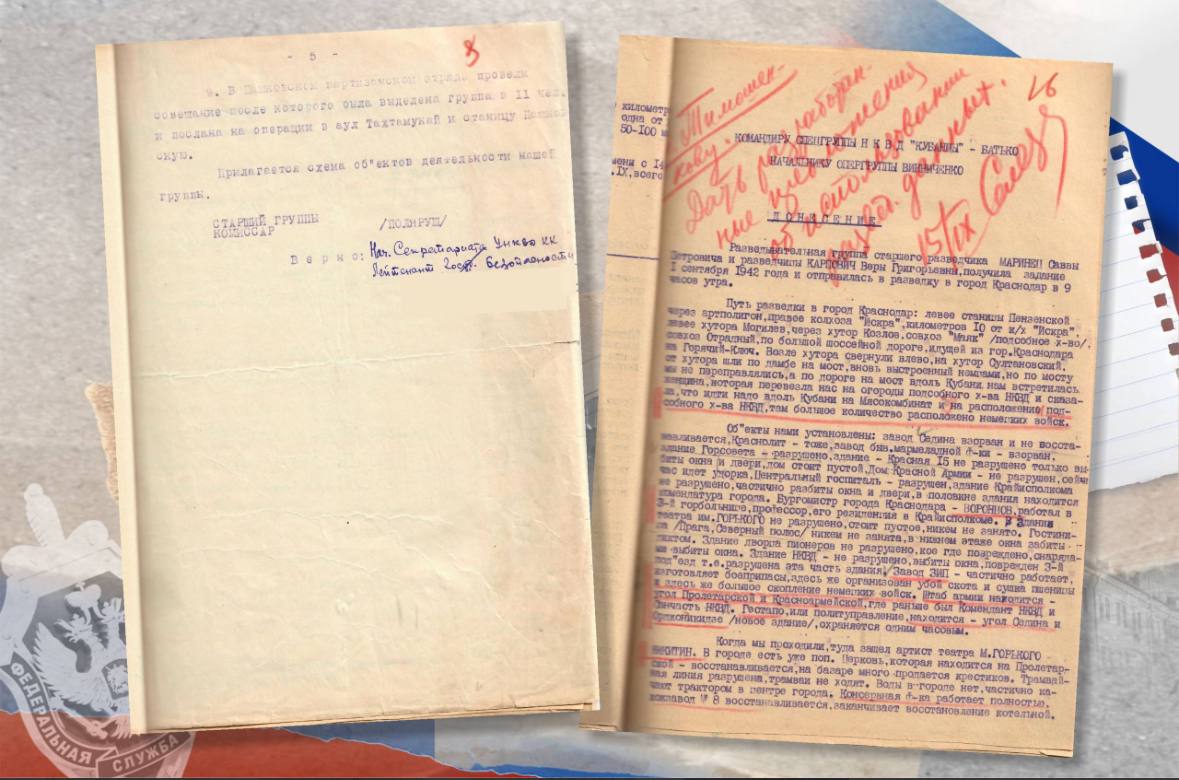 - 5 -
8
9. В Пашковском партизанском отряде провели
совещание после которого была выделена группа в 11 чел.
и послана на операции в аул Тахтамукай и станицу Пашков
скую.
Прилагается схема об"ектов деятельности нашей
группы.
СТАРШИЙ ГРУППЫ
КОМИССАР /ПОДПРУШ/
Верно: Нач. Секретариата УНКВД КК
Лейтенант Гос. Безопасности
километр
одна от
50-100 м
мены с 14
.IX, всего
16
Тимошен-
кову.
Дать разработан-
ные предложения
об использовании
развед. данных.
15/IX
КОМАНДИРУ СПЕЦГРУППЫ Н К В Д "КУБАНЦЫ" - БАТЬКО
НАЧАЛЬНИКУ ОПЕРГРУППЫ ВИННИЧЕНКО
ДОНЕСЕНИЕ
Разведывательная группа старшего разведчика МАРИНЕЦ Саввы
Петровича и разведчицы КАРПОВИЧ Веры Григорьевны,получила задание
I сентября 1942 года и отправилась в разведку в город Краснодар в 9
часов утра.
Путь разведки в город Краснодар: левее станицы Пензенской
через артполигон,правее колхоза "Искра",километров IO от к/х "Искра".
левее хутора Могилев,через хутор Козлов,совхоз "Маяк" /подсобное х-во/,
совхоз Отрадный,по большой шоссейной дороге,идущей из гор.Краснодара
на Горячий-Ключ. Возле хутора свернули влево,на хутор Султановский,
от хутора шли по дамбе на мост,вновь выстроенный немцами,но по мосту
мы не переправлялись,а по дороге на мост вдоль Кубани нам встретилась
женщина,которая перевезла нас на огороды подсобного х-ва НКВД и сказа-
ла,что идти надо вдоль Кубани на Мясокомбинат и на расположение под-
собного х-ва НКВД,там большое количество расположено немецких войск.
Об"екты нами установлены: завод Седина взорван и не восста-
навливается,Краснолит - тоже,завод быв.мармеладной ф-ки - взорван,
здание Горсовета - разрушено,здание - Красная I5 не разрушено только вы-
биты окна и двери,дом стоит пустой,Дом Красной Армии - не разрушен,сейч
час идет уборка,Центральный госпиталь - разрушен,здание Крайисполкома
не разрушено,частично разбиты окна и двери,в половине здания находится
комендатура города. Бургомистр города Краснодара - ВОРОНЦОВ,работал в
3-й горбольнице,профессор,его резиденция в Крайисполкоме. Здание
театра им.ГОРЬКОГО не разрушено,стоит пустое,никем не занято. Гостини-
ца /Прага,Северный полюс/ никем не занята,в нижнем этаже окна забиты
диктом. Здание дворца пионеров не разрушено,кое где повреждено,снаряда-
ми выбиты окна. Здание НКВД - не разрушено,выбиты окна,поврежден 3-й
под"езд т.е.разрушена эта часть здания. Завод ЗИП - частично работает,
изготовляет боеприпасы,здесь же организован убой скота и сушка пшеницы
и здесь же большое скопление немецких войск. Штаб армии находится -
угол Пролетарской и Красноармейской,где раньше был Комендант НКВД и
Санчасть НКВД. Гестапо,или политуправление,находится - угол Седина и
Орджоникидзе /новое здание/,охраняется одним часовым.
Когда мы проходили,туда зашел артист театра М.ГОРЬКОГО -
НИКИТИН. В городе есть уже поп. Церковь,которая находится на Пролетар-
ской - восстанавливается,на базаре много продается крестиков. Трамвай-
ная линия разрушена,трамваи не ходят. Воды в городе нет,частично ка-
чают трактором в центре города. Консервная ф-ка работает полностью,
кожзавод № 8 восстанавливается,заканчивает восстановление котельной.
ФЕДЕРАЛЬНАЯ СЛУЖБА